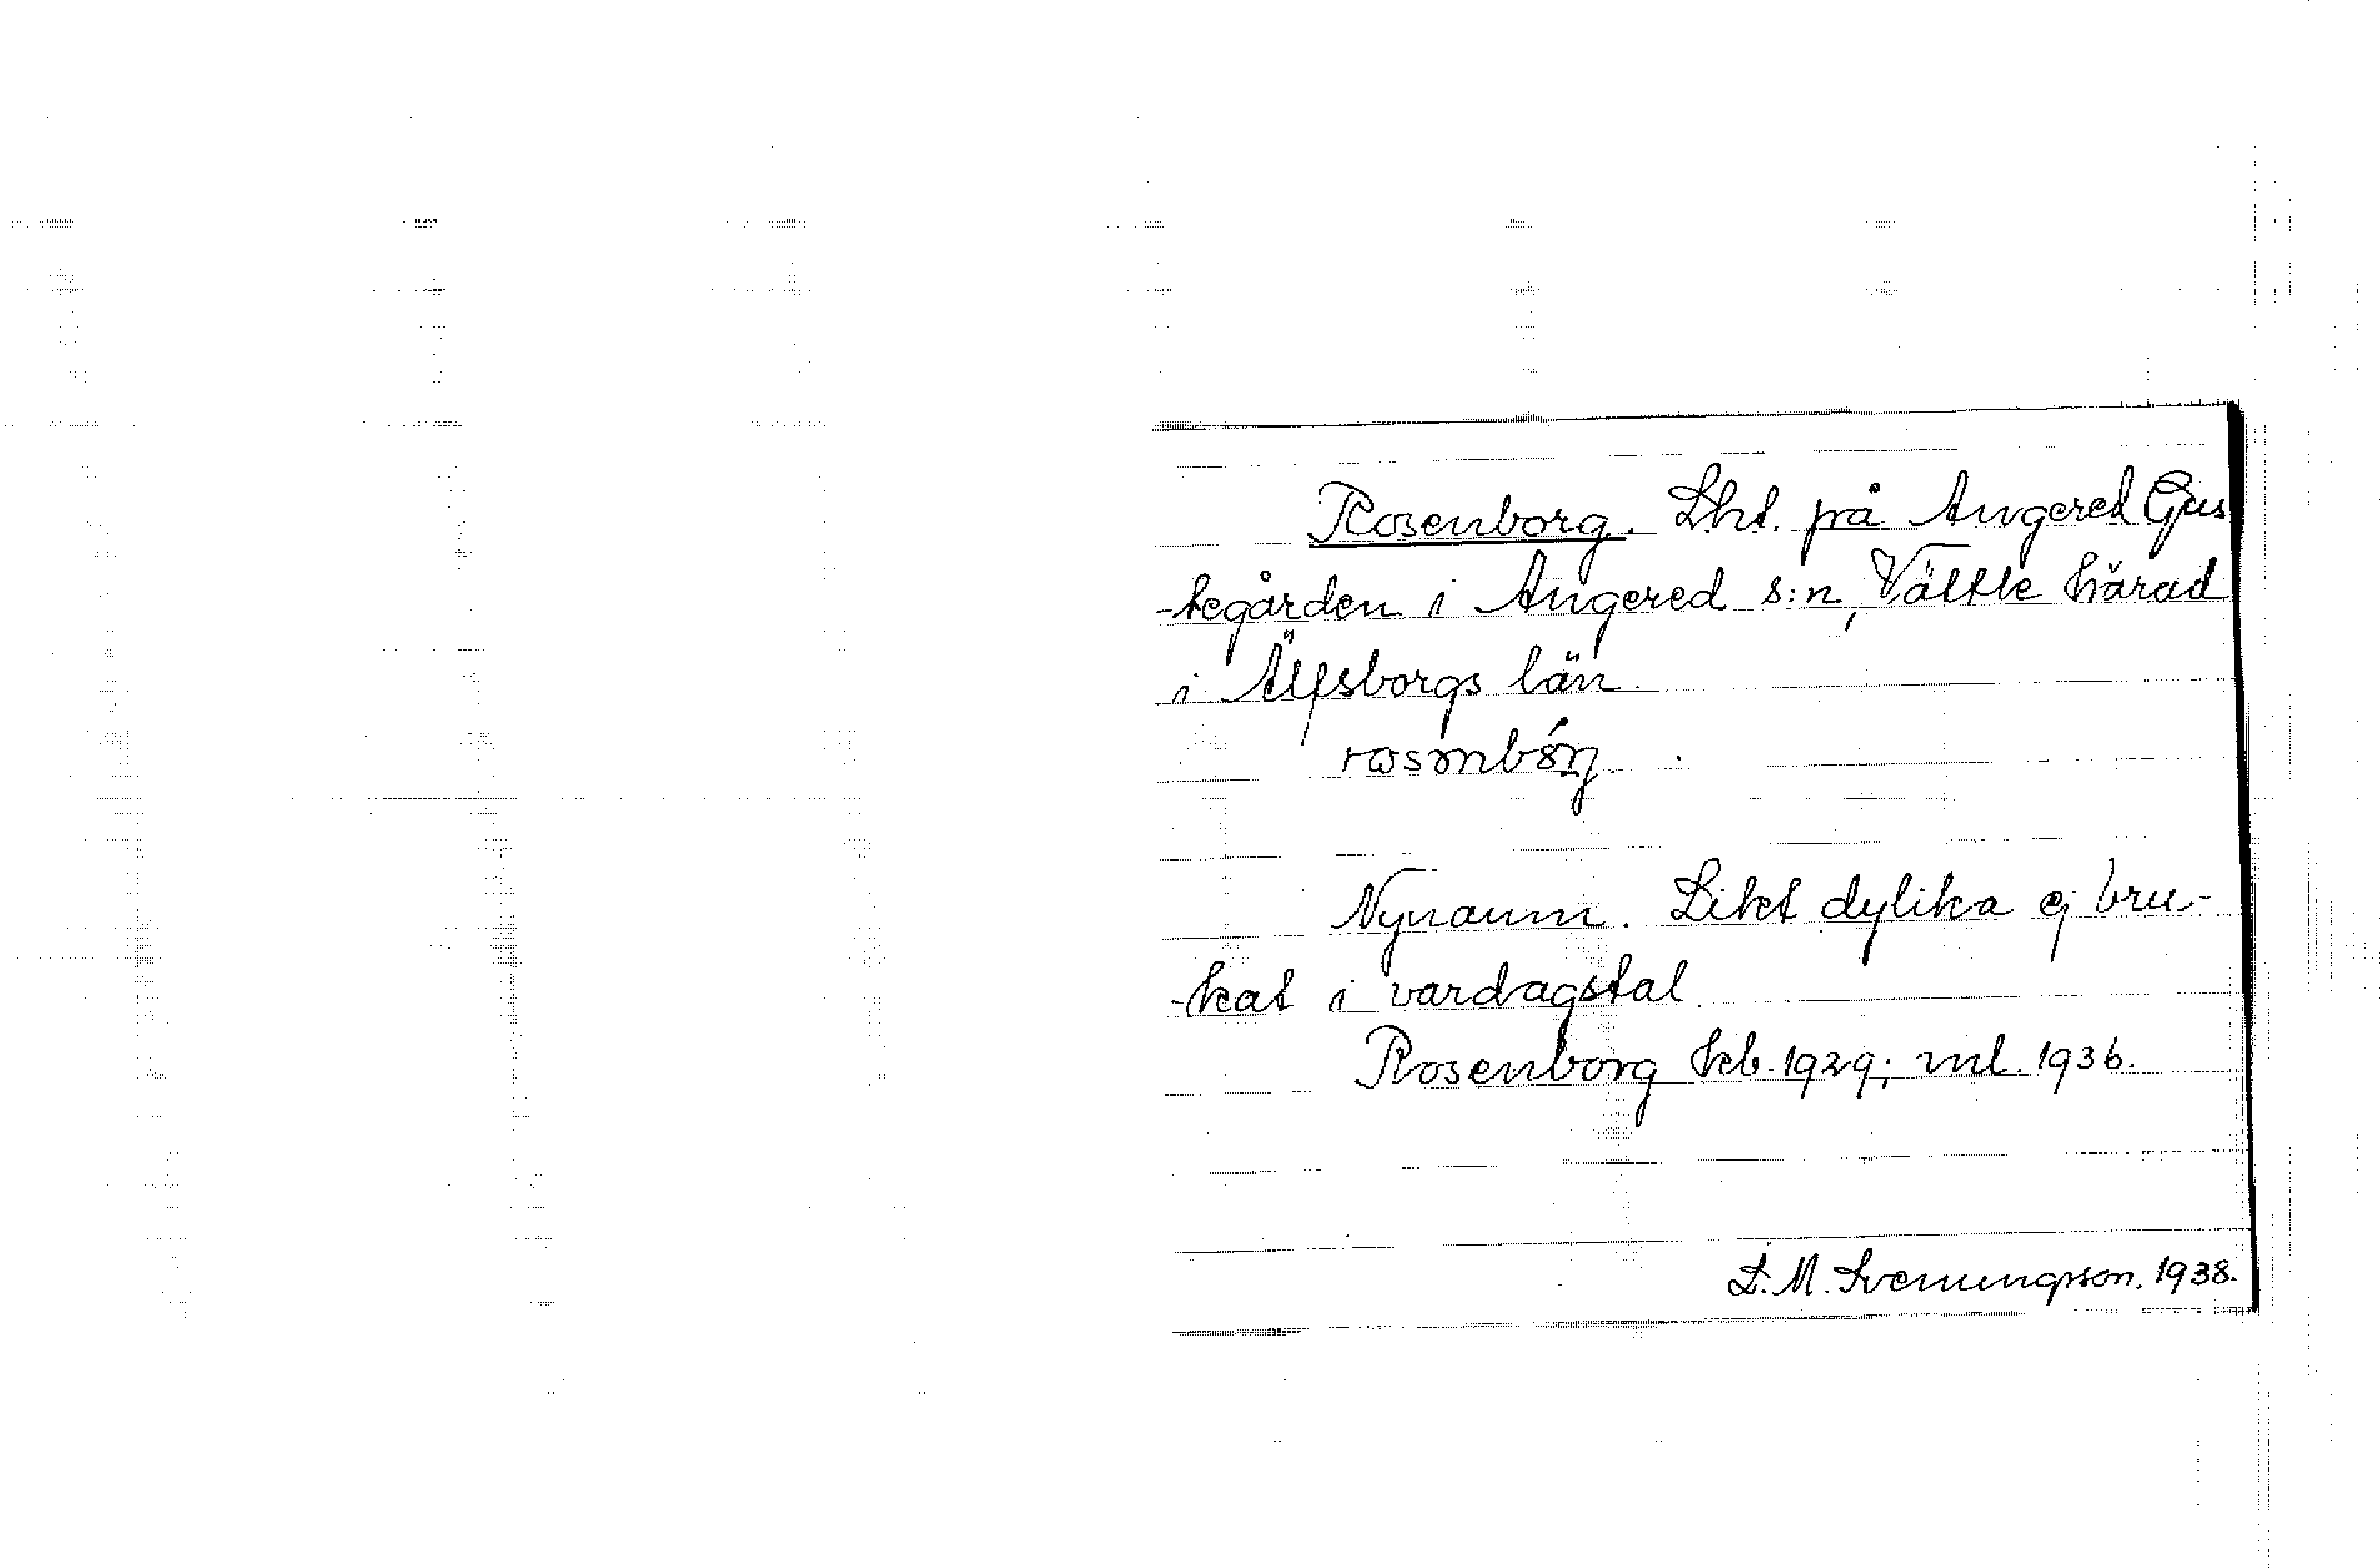 Rosenborg. Lht. på Angered Gäs
-tegården i Angered s:n, Vättle härad
i Älfsborgs län.
Nynamn. Likt dylika ej bru-
-kat i vardagstal.
Rosenborg kb. 1929; ml. 1936.
L. M. Svenungsson. 1938.